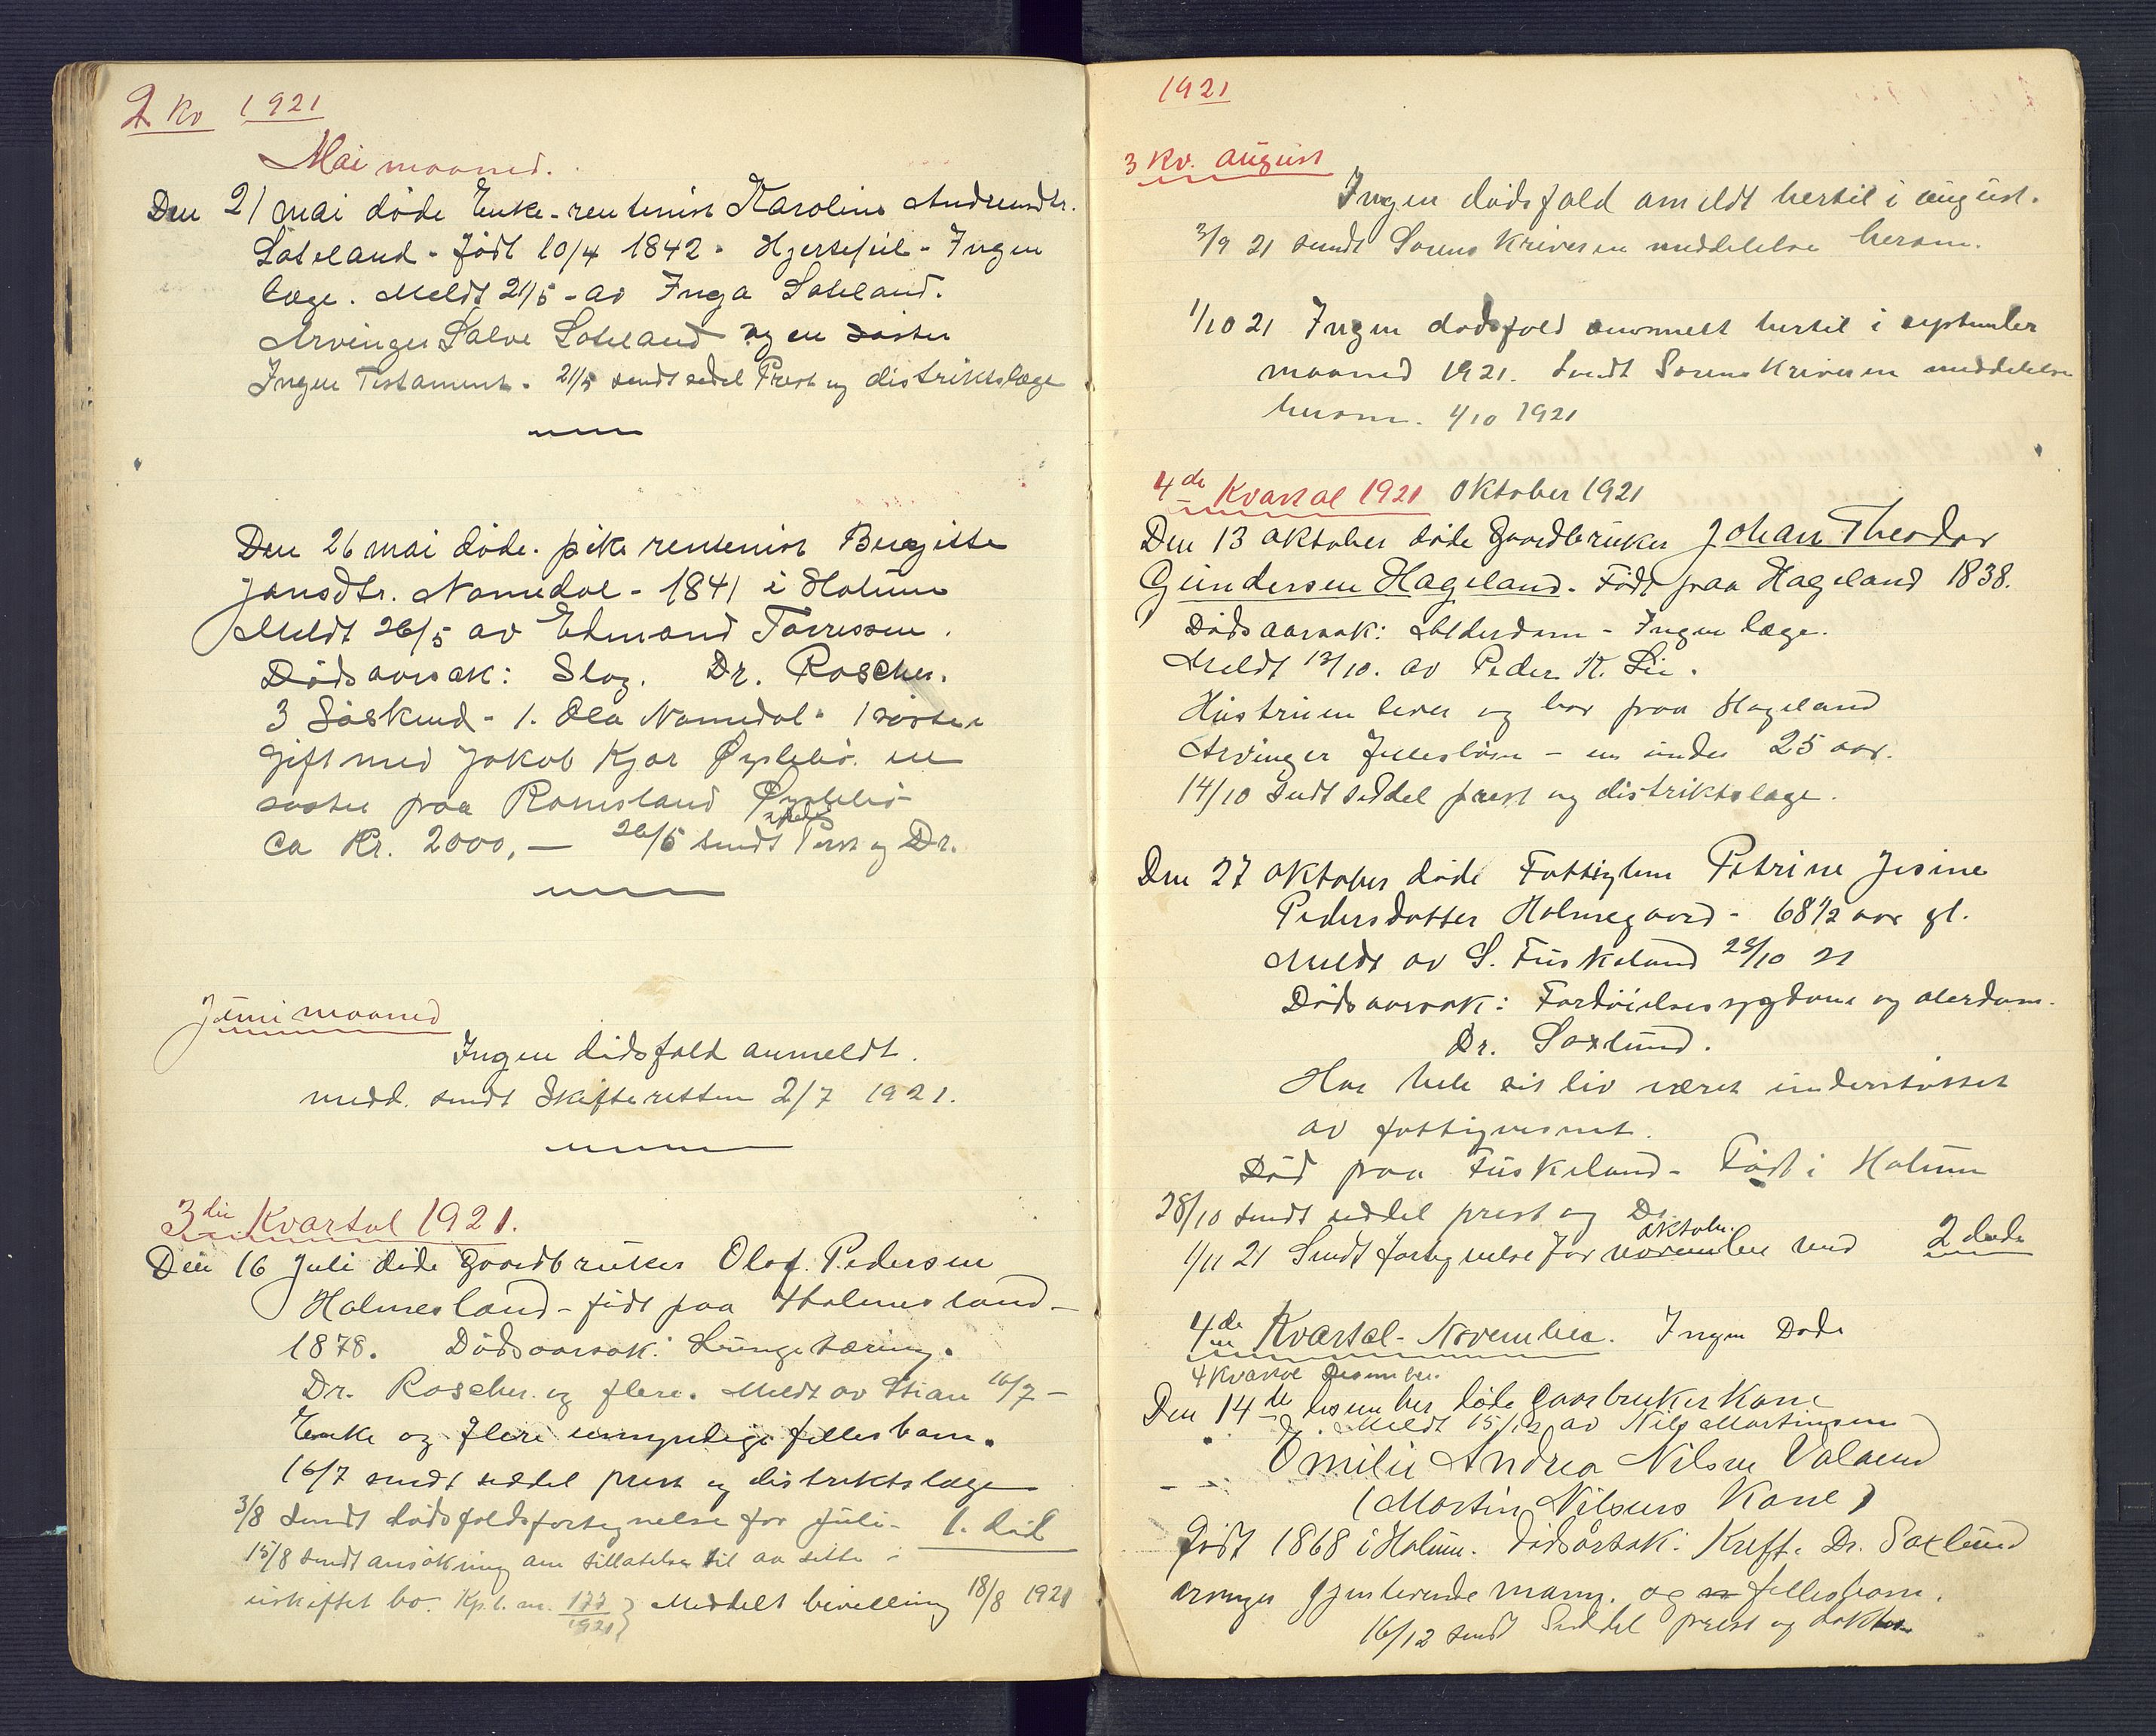 2 Kv 1921
Mai maaned.
Den 21 mai døde Enke-rentenist Karoline Andreasdtr.
Løteland - født 10/4 1842. Hjertefeil - Ingen
læge. Meldt 21/5 - av Inga Løteland.
Arvinger Salve Løteland og en søster
Ingen Testament. 21/5 sendt sedel Prest og distriktslæge
Den 26 mai døde. pike rentenist Bergitte
Jansdtr. Nomedal - 1841 i Holum
Meldt 26/5 av Edmond Torressen.
Dødsaarsak: Slag. Dr. Roscher.
3 Søskend - 1. Ola Nomedal. 1 søster
gift med Jakob Kjær Øyslebø. en
søster paa Romsland Øyslebø
ca Kr. 2000,- 26/5 sendt sedel Prest og Dr.
Juni maaned
Ingen dødsfald anmeldt.
medd. sendt Skifteretten 2/7 1921.
3die Kvartal 1921.
Den 16 Juli døde gaardbruker Olaf Pedersen
Holmesland - født paa Holmesland -
1878. Dødsaarsak: Lungetæring.
Dr. Roscher og flere. Meldt av Stian 16/7 -
Enke og flere umyndige felles barn.
16/7 sendt seddel prest og distriktslæge
3/8 Sendt dødsfaldsfortegnelse for juli - 1. død
15/8 sendt ansøkning om tillatelse til aa sitte i
uskiftet bo. Kpl. nr. 177/1921 } Meddelt bevilling 18/8 1921
1921
3 Kv. august
Ingen dødsfald anmeldt hertil i august.
3/9 21 sendt Sorenskriveren meddelelse herom.
1/10 21 Ingen dødsfald anmeldt hertil i september
maaned 1921. Sendt Sorenskriveren meddelelse
herom. 1/10 1921
4de Kvartal 1921 Oktober 1921
Den 13 oktober døde Gaardbruker Johan Theodor
Gundersen Hageland. Født paa Hageland 1838.
Dødsaarsak: Alderdom - Ingen læge.
Meldt 13/10. av Peder K. Lie.
Hustruen lever og bor paa Hageland
Arvinger fellesbarn - en under 25 aar.
14/10 sendt seddel prest og distriktslæge.
Den 27 oktober døde Fattiglem Petrine Jesine
Pedersdatter Holmegaard - 68 1/2 aar gl.
Meldt av S. Fuskeland 28/10 21
Dødsaarsak: Fordøielsessygdom og alerdom.
Dr. Saxlund.
Har hele sit liv været understøttet
av fattigvesnet.
Død paa Fuskeland - Født i Holum
28/10 sendt seddel prest og Dr.
1/11 21 Sendt fortegnelse for november oktober med 2 døde
4de Kvartal - November. Ingen Døde
4 Kvartal Desember.
Den 14de desember døde gaarbrukerkone
Meldt 15/12 av Nils Martinsen
Emilie Andrea Nilsen Valand
(Martin Nilsens Kone)
født 1868 i Holum. Dødsårsak: Kreft. Dr. Saxlund
arvinger gjenlevende mann. og fellesbarn.
16/12 sendt Seddel prest og doktor